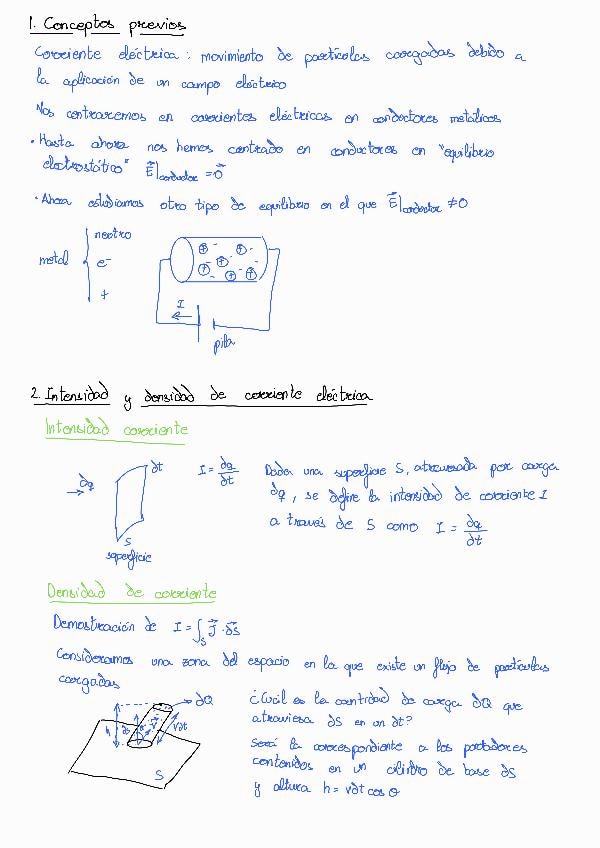 1. Conceptos previos
Corriente eléctrica: movimiento de partículas cargadas debido a
la aplicación de un campo eléctrico
Nos centraremos en corrientes eléctricas en conductores metálicos
• Hasta ahora nos hemos centrado en conductores en "equilibrio
electrostático" E⃗|conductor = 0⃗
• Ahora estudiamos otro tipo de equilibrio en el que E⃗|conductor ≠ 0
metal { neutro
e⁻
+
I
pila
2. Intensidad y densidad de corriente eléctrica
Intensidad corriente
dq dt I = dq/dt Dada una superficie S, atravesada por carga
dq, se define la intensidad de corriente I
a través de S como I = dq/dt
S
superficie
Densidad de corriente
Demostración de I = ∫S J⃗ · dS⃗
Consideramos una zona del espacio en la que existe un flujo de partículas
cargadas
dQ ¿Cuál es la cantidad de carga dQ que
atraviesa dS en un dt?
h vdt
Será la correspondiente a los portadores
contenidos en un cilindro de base dS
S y altura h = vdt cos θ